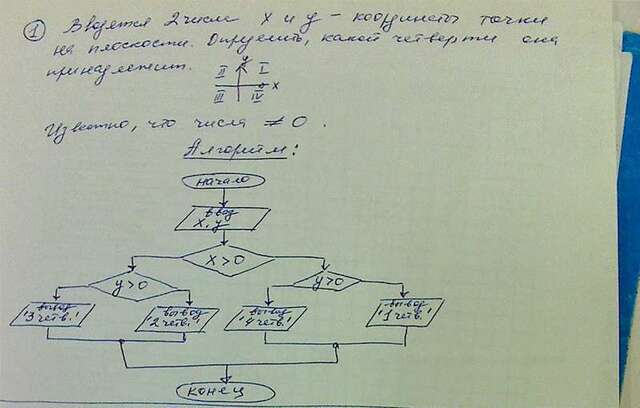 ① Вводятся 2 числа x и y – координаты точки
на плоскости. Определить, какой четверти она
принадлежит.
y
II I
x
III IV
Известно, что числа ≠ 0.
Алгоритм:
начало
ввод
x, y
x>0
y>0 y>0
вывод вывод вывод вывод
'3 четв.' '2 четв.' '4 четв.' '1 четв.'
конец